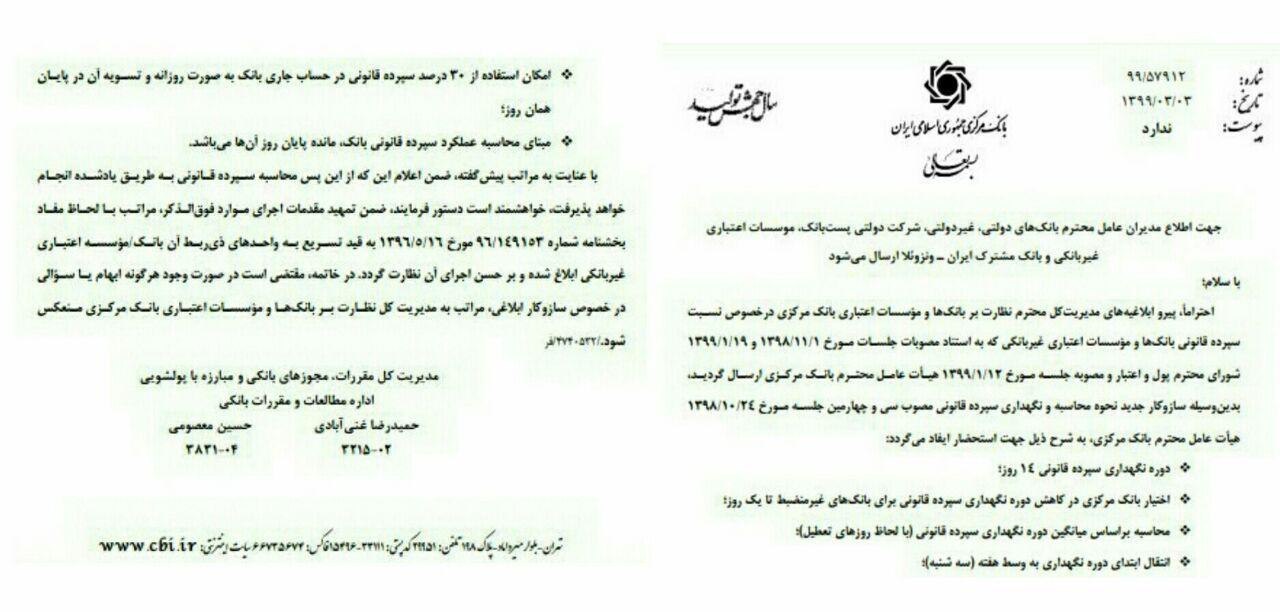 شماره: ۹۹/۵۷۹۱۲
تاریخ: ۱۳۹۹/۰۳/۰۳
پیوست: ندارد
بانک مرکزی جمهوری اسلامی ایران
بسمه تعالی
سال جهش تولید
جهت اطلاع مدیران عامل محترم بانک‌های دولتی، غیردولتی، شرکت دولتی پست‌بانک، موسسات اعتباری
غیربانکی و بانک مشترک ایران – ونزوئلا ارسال می‌شود
با سلام؛
احتراماً، پیرو ابلاغیه‌های مدیریت‌کل محترم نظارت بر بانک‌ها و مؤسسات اعتباری بانک مرکزی درخصوص نسبت
سپرده قانونی بانک‌ها و مؤسسات اعتباری غیربانکی که به استناد مصوبات جلسات مورخ ۱۳۹۸/۱۱/۱ و ۱۳۹۹/۱/۱۹
شورای محترم پول و اعتبار و مصوبه جلسه مورخ ۱۳۹۹/۱/۱۲ هیأت عامل محترم بانک مرکزی ارسال گردید،
بدین‌وسیله سازوکار جدید نحوه محاسبه و نگهداری سپرده قانونی مصوب سی و چهارمین جلسه مورخ ۱۳۹۸/۱۰/۲۴
هیأت عامل محترم بانک مرکزی، به شرح ذیل جهت استحضار ایفاد می‌گردد:
❖ دوره نگهداری سپرده قانونی ۱۴ روز؛
❖ اختیار بانک مرکزی در کاهش دوره نگهداری سپرده قانونی برای بانک‌های غیرمنضبط تا یک روز؛
❖ محاسبه براساس میانگین دوره نگهداری سپرده قانونی (با لحاظ روزهای تعطیل)؛
❖ انتقال ابتدای دوره نگهداری به وسط هفته (سه شنبه)؛
❖ امکان استفاده از ۳۰ درصد سپرده قانونی در حساب جاری بانک به صورت روزانه و تسویه آن در پایان
همان روز؛
❖ مبنای محاسبه عملکرد سپرده قانونی بانک، مانده پایان روز آن‌ها می‌باشد.
با عنایت به مراتب پیش‌گفته، ضمن اعلام این که از این پس محاسبه سپرده قانونی به طریق یادشده انجام
خواهد پذیرفت، خواهشمند است دستور فرمایند، ضمن تمهید مقدمات اجرای موارد فوق‌الذکر، مراتب با لحاظ مفاد
بخشنامه شماره ۹۶/۱۴۹۱۵۳ مورخ ۱۳۹۶/۵/۱۶ به قید تسریع به واحدهای ذی‌ربط آن بانک/مؤسسه اعتباری
غیربانکی ابلاغ شده و بر حسن اجرای آن نظارت گردد. در خاتمه، مقتضی است در صورت وجود هرگونه ابهام یا سؤالی
در خصوص سازوکار ابلاغی، مراتب به مدیریت کل نظارت بر بانک‌ها و مؤسسات اعتباری بانک مرکزی منعکس
شود./۴۷۴۰۵۳۲/فر
مدیریت کل مقررات، مجوزهای بانکی و مبارزه با پولشویی
اداره مطالعات و مقررات بانکی
حمیدرضا غنی‌آبادی حسین معصومی
۳۲۱۵-۰۲ ۳۸۳۱-۰۴
تهران-بلوار میرداماد-پلاک ۱۹۸ تلفن: ۲۹۹۵۱ کدپستی: ۳۳۱۱۱-۱۵۴۹۶ فاکس: ۶۶۷۳۵۶۷۴ سایت اینترنتی: www.cbi.ir